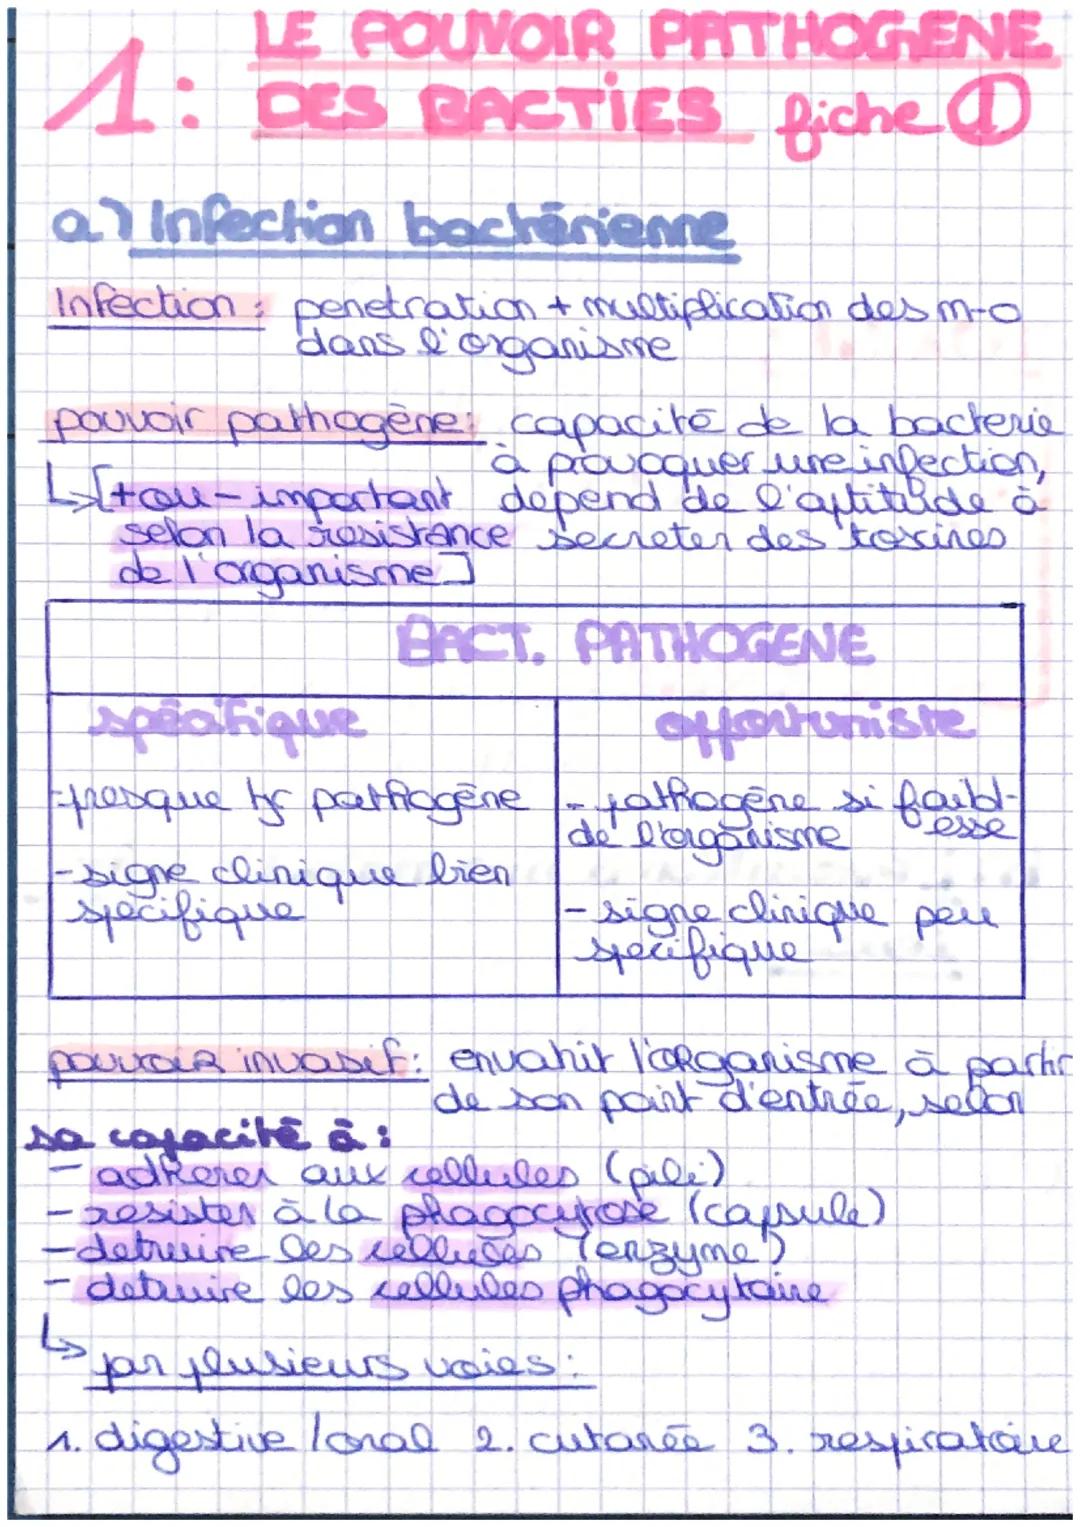 LE POUVOIR PATHOGENE
1: DES BACTIES fiche ①
a) Infection bactérienne
Infection : penetration + multiplication des m-o
dans l'organisme
pouvoir pathogène: capacité de la bacterie
à provoquer une infection,
↳[+ou- important dépend de l'aptitude à
selon la resistance secreter des toxines
de l'organisme]
BACT. PATHOGENE
spécifique opportuniste
-presque tjr pathogène - pathogène si faibl-
esse
de l'organisme
-signe clinique bien
spécifique - signe clinique peu
specifique
pouvoir invasif: envahit l'organisme à partir
de son point d'entrée, selon
sa capacité à :
- adherer aux cellules (pili)
- resister à la phagocytose (capsule)
- detruire les cellules (enzyme)
- detruire les cellules phagocytaire
↳ par plusieurs voies :
1. digestive / oral 2. cutanée 3. respiratoire